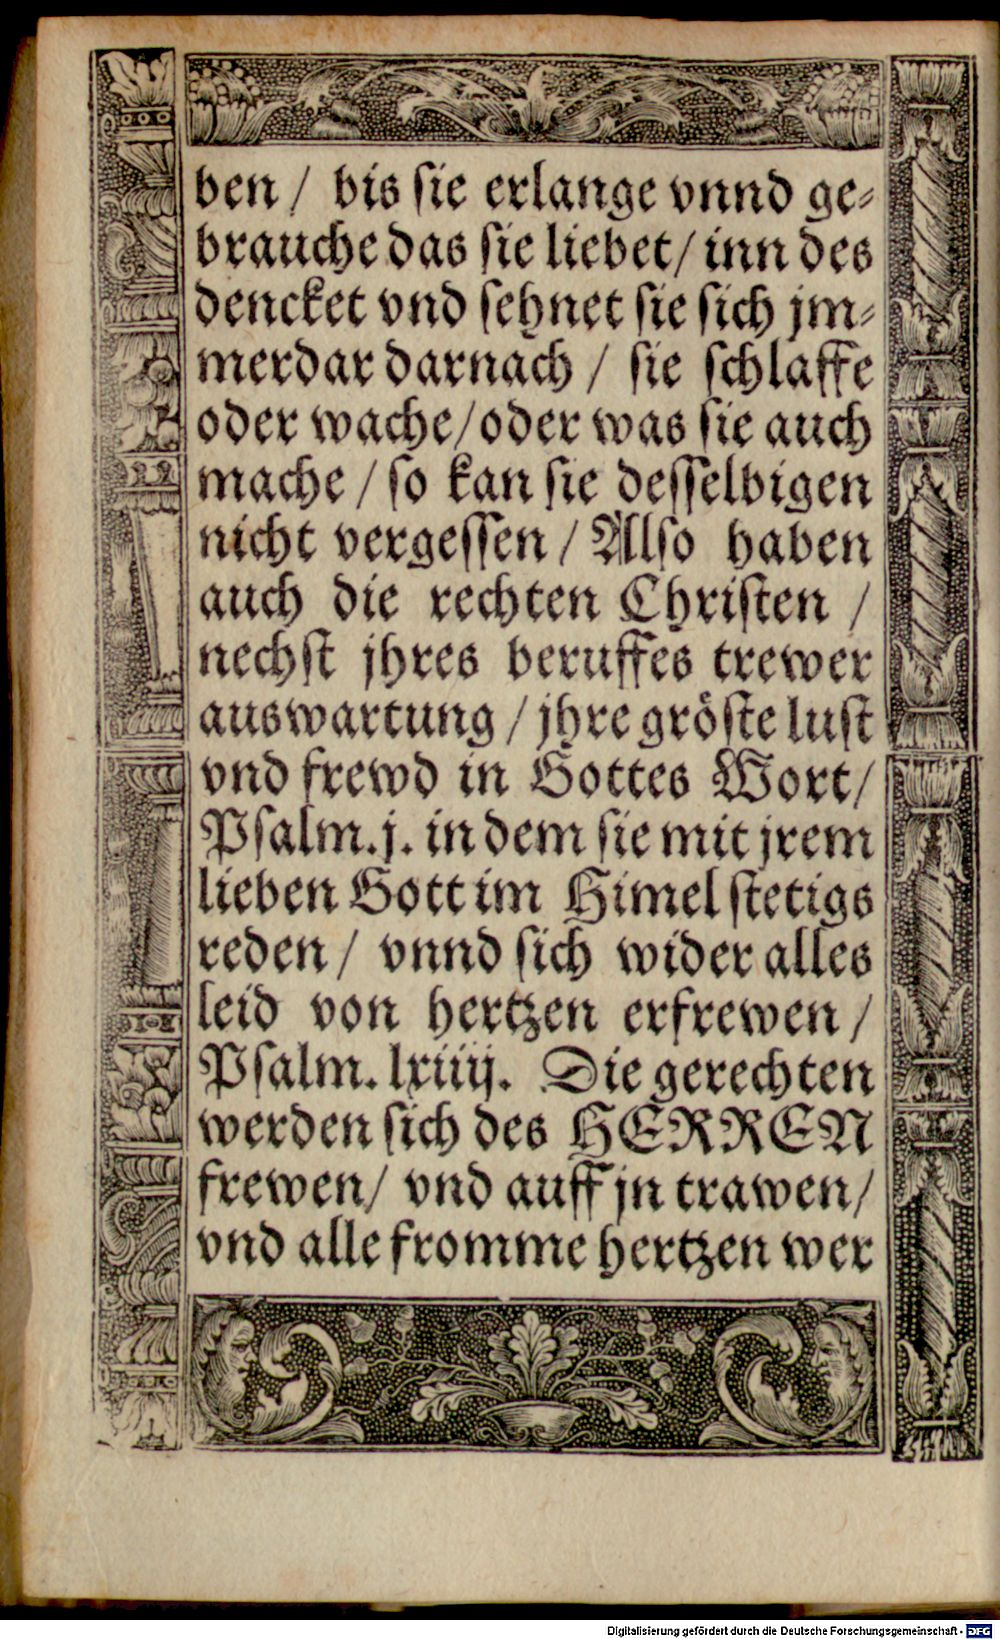 ben / bis sie erlange vnnd ge⸗
brauche das sie liebet / inn des
dencket vnd sehnet sie sich jm⸗
merdar darnach / sie schlaffe
oder wache / oder was sie auch
mache / so kan sie desselbigen
nicht vergessen / Also haben
auch die rechten Christen /
nechst jhres beruffes trewer
auswartung / jhre gröste lust
vnd frewd in Gottes Wort /
Psalm. j. in dem sie mit jrem
lieben Gott im Himel stetigs
reden / vnnd sich wider alles
leid von hertzen erfrewen /
Psalm. lxiiij. Die gerechten
werden sich des HERREN
frewen / vnd auff jn trawen /
vnd alle fromme hertzen wer
Digitalisierung gefördert durch die Deutsche Forschungsgemeinschaft - DFG